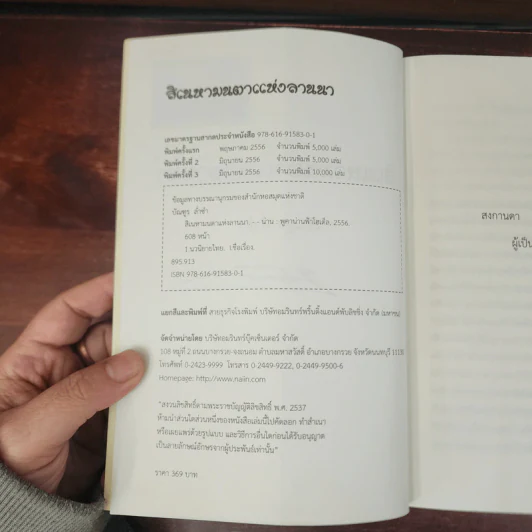 สิเนหามนตาแห่งลานนา
เลขมาตรฐานสากลประจำหนังสือ 978-616-91583-0-1
พิมพ์ครั้งแรก พฤษภาคม 2556 จำนวนพิมพ์ 5,000 เล่ม
พิมพ์ครั้งที่ 2 มิถุนายน 2556 จำนวนพิมพ์ 5,000 เล่ม
พิมพ์ครั้งที่ 3 มิถุนายน 2556 จำนวนพิมพ์ 10,000 เล่ม
ข้อมูลทางบรรณานุกรมของสำนักหอสมุดแห่งชาติ
บัณฑูร ล่ำซำ
สิเนหามนตาแห่งลานนา.-- น่าน : พูคาน่านฟ้าโฮเต็ล, 2556.
608 หน้า.
1.นวนิยายไทย. I.ชื่อเรื่อง.
895.913
ISBN 978-616-91583-0-1
แยกสีและพิมพ์ที่ สายธุรกิจโรงพิมพ์ บริษัทอมรินทร์พริ้นติ้งแอนด์พับลิชชิ่ง จำกัด (มหาชน)
จัดจำหน่ายโดย บริษัทอมรินทร์บุ๊คเซ็นเตอร์ จำกัด
108 หมู่ที่ 2 ถนนบางกรวย-จงถนอม ตำบลมหาสวัสดิ์ อำเภอบางกรวย จังหวัดนนทบุรี 1113
โทรศัพท์ 0-2423-9999 โทรสาร 0-2449-9222, 0-2449-9500-6
Homepage: http://www.naiin.com
"สงวนลิขสิทธิ์ตามพระราชบัญญัติลิขสิทธิ์ พ.ศ. 2537
ห้ามนำส่วนใดส่วนหนึ่งของหนังสือเล่มนี้ไปคัดลอก ทำสำเนา
หรือเผยแพร่ด้วยรูปแบบ และวิธีการอื่นใดก่อนได้รับอนุญาต
เป็นลายลักษณ์อักษรจากผู้ประพันธ์เท่านั้น"
ราคา 369 บาท
สงกานดา
ผู้เป็น